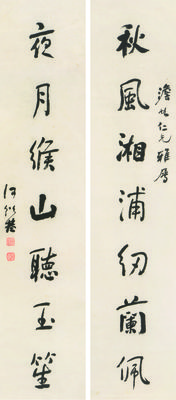 秋風湘浦紉蘭佩
仁兄雅屬
夜月緱山聽玉笙
何紹基